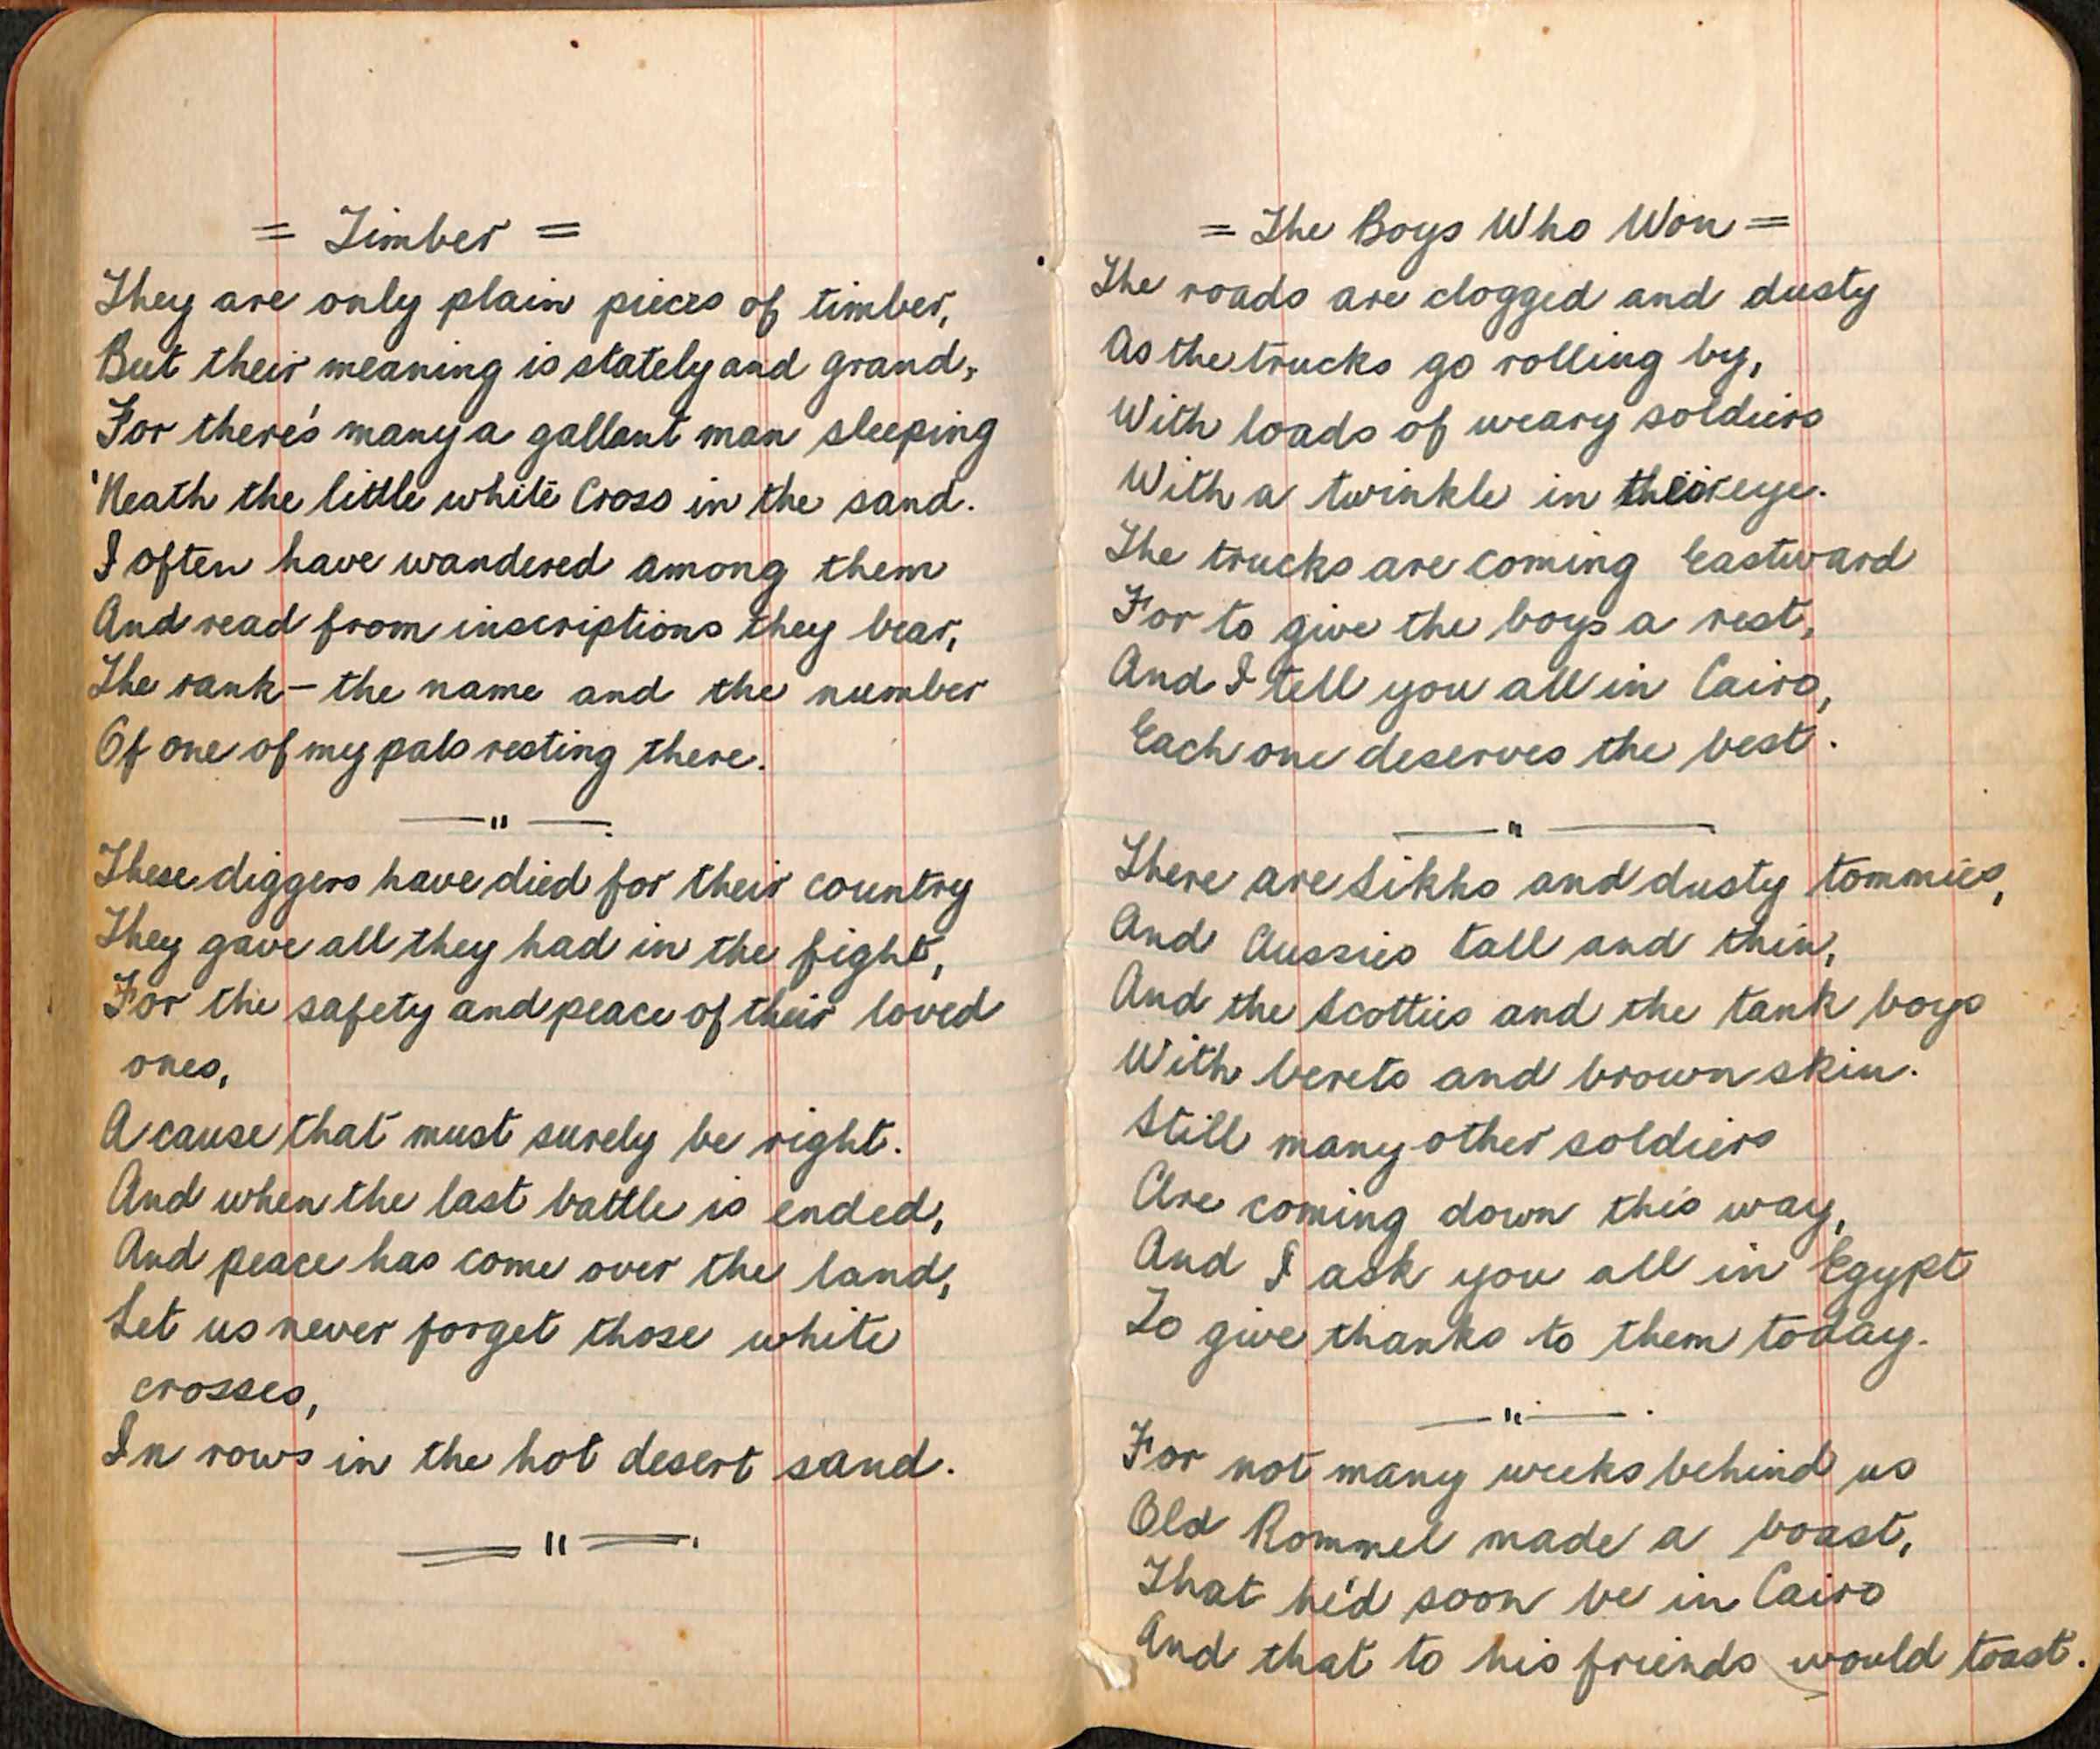 = Timber =
They are only plain pieces of timber,
But their meaning is stately and grand,
For there's many a gallant man sleeping
'Neath the little white Cross in the sand.
I often have wandered among them
And read from inscriptions they bear,
The rank – the name and the number
Of one of my pals resting there.
— " —
These diggers have died for their country
They gave all they had in the fight,
For the safety and peace of their loved
ones,
A cause that must surely be right.
And when the last battle is ended,
And peace has come over the land,
Let us never forget those white
crosses,
In rows in the hot desert sand.
== " ==
= The Boys Who Won =
The roads are clogged and dusty
As the trucks go rolling by,
With loads of weary soldiers
With a twinkle in their eye.
The trucks are coming Eastward
For to give the boys a rest,
And I tell you all in Cairo,
Each one deserves the best.
— " —
There are Sikhs and dusty tommies,
And Aussies tall and thin,
And the Scotties and the tank boys
With berets and brown skin.
Still many other soldiers
Are coming down this way,
And I ask you all in Egypt
To give thanks to them today.
— " —
For not many weeks behind us
Old Rommel made a boast,
That he'd soon be in Cairo
And that to his friends would toast.